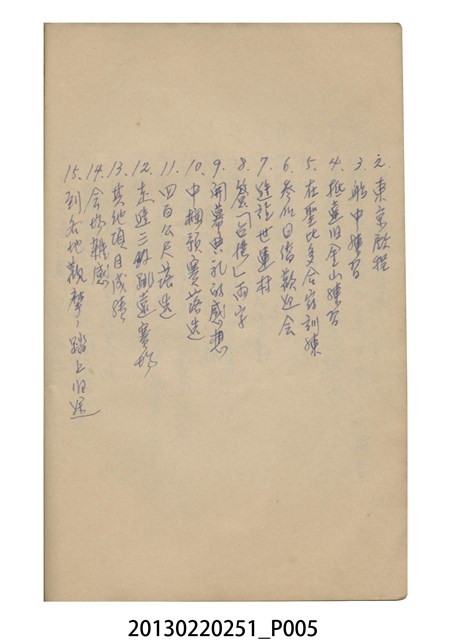 2. 東京啟程
3. 船中練習
4. 抵達旧金山練習
5. 在聖比多合宿訓練
6. 参加日僑歡迎会
7. 進於世運村
8. 簽「台僑」兩字
9. 開幕典礼的感想
10. 中欄預賽落選
11. 四百公尺落選
12. 走進三級跳遠賽場
13. 其他項目成績
14. 会場雜感
15. 到各地觀摩，踏上旧途
20130220251_P005